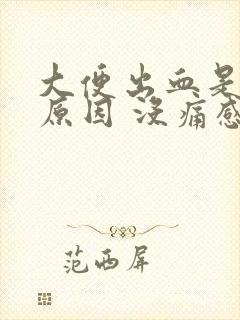 大便出血是
原因 没痛感
范西屏